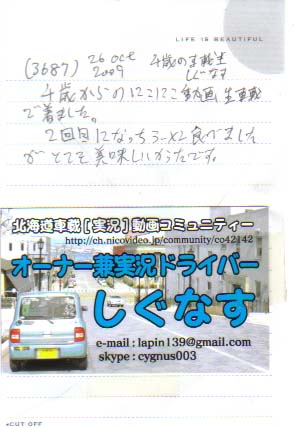 LIFE IS BEAUTIFUL
(3687) 26 Oct 2009
4歳の車載主
しぐなす
4歳からのにこにこ動画 生車載
で着ました。
2回目になっち 食べました
がとても美味しかったです。
北海道車載[実況]動画コミュニティー
http://ch.nicovideo.jp/community/co42142
オーナー兼実況ドライバー
しぐなす
e-mail : lapin139@gmail.com
skype : cygnus003
CUT OFF